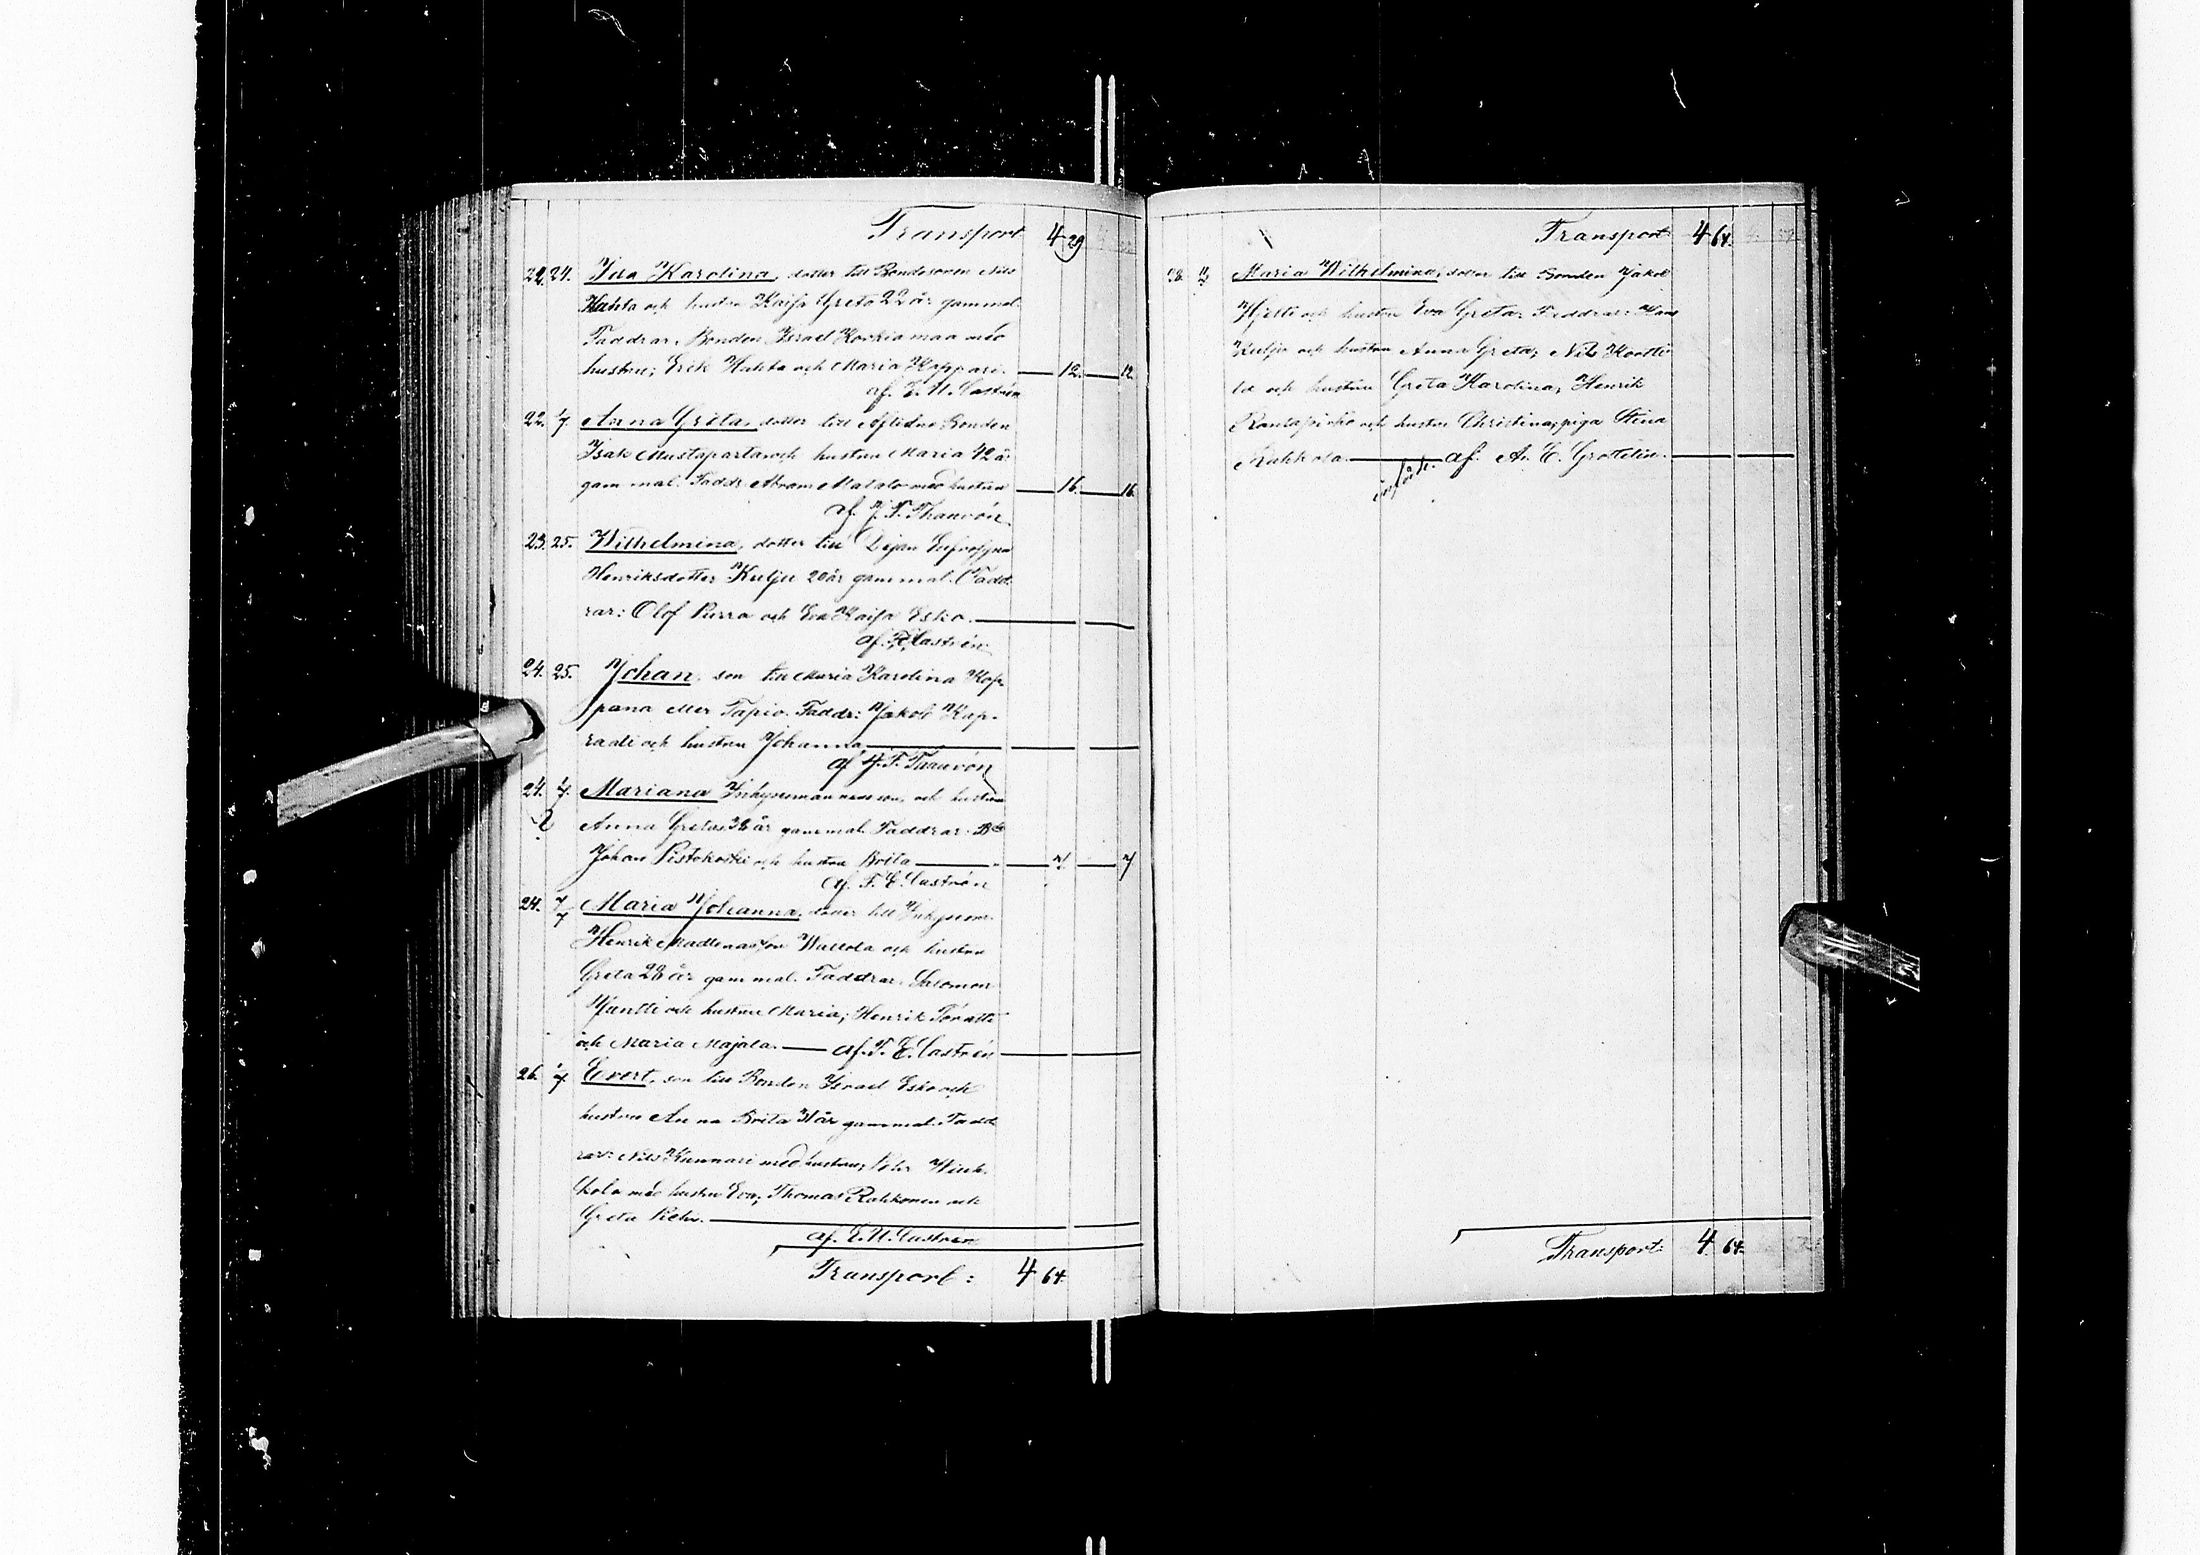 Transport 4 29
22. 24. Ida Karolina, dotter till Bondesonen Nils
Hahta och hustru Kaisa Greta 22 år gammal.
Faddrar: Bonden Israel Korkiamaa med
hustru; Erik Hahta och Maria Koppari. 12. 12.
af. E. U. Castrén
22. 1/7. Anna Greta, dotter till Aflidne Bonden
Isak Mustaparta och hustru Maria 42 år
gammal. Faddr: Abram Matala med hustru 16. 16.
af. J. F. Thauvón
23. 25. Wilhelmina, dotter till Pigan
Henriksdotter Kulju 20 år gammal. Fadd-
rar: Olof Purra och Eva Kaisa Esko.
af. Castrén
24. 25. Johan, son till Maria Karolina Kop-
pana eller Tapio. Faddr: Jakob Kap-
raali och hustru Johanna
af J. F. Thauvón
24. 1/7. Mariana och hustru
Anna Greta 38 år gammal. Faddrar: Bd
Johan Pistokoski och hustru Brita
af. F. E. Castrén
24. Maria Johanna, dotter till Inhysem.
Henrik Madlenasson och hustru
Greta 28 år gammal. Faddrar: Salomon
Jantti och hustru Maria; Henrik
och Maria Majala. af. F. E. Castrén
26. 1/7. Evert, son till Bonden Israel Esko och
hustru Anna Brita 31 år gammal. Fadd-
rar: Nils Kunnari med hustru; Pehr
kola med hustru Eva; Thomas Rahkonen och
Greta Pehr.
af. E. U. Castrén
Transport: 4 64.
Transport 4 64.
28. Maria Wilhelmina, dotter till Bonden Jakob
Hjelti och hustru Eva Greta. Faddrar: Hans
Kulju och hustru Anna Greta; Nils
la och hustru Greta Karolina; Henrik
Rantapirko och hustru Christina; piga Stina
Kahkola. af. A. E. Grottelin.
Transport: 4 64.